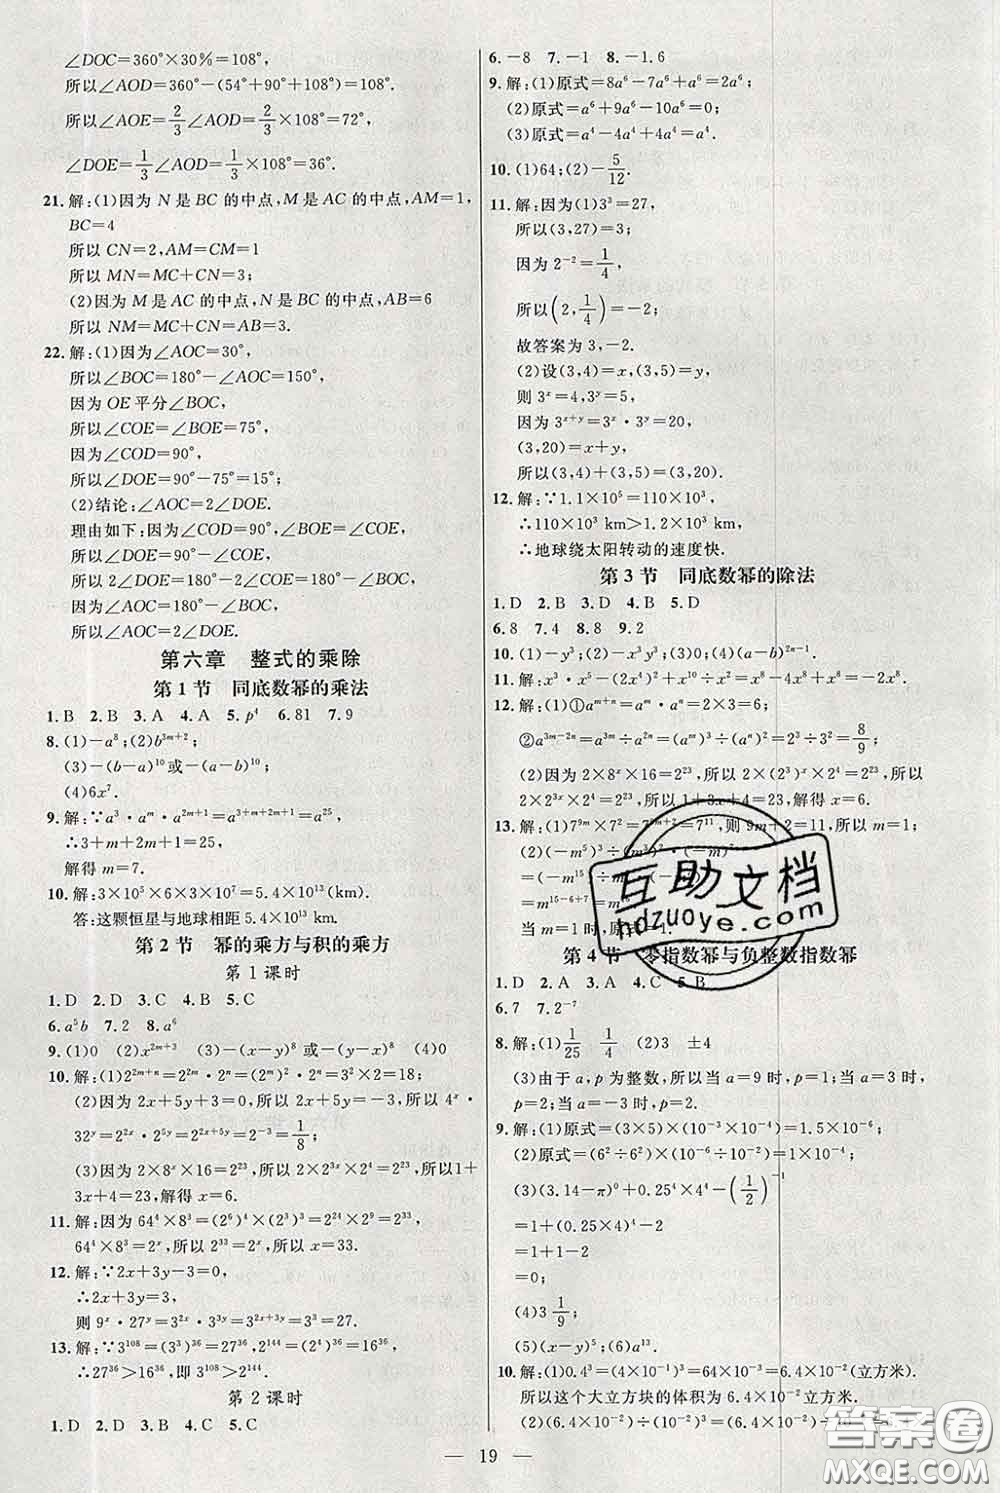 ∠DOC=360°×30%=108°,
所以∠AOD=360°-(54°+90°+108°)=108°.
所以∠AOE=2/3∠AOD=2/3×108°=72°,
∠DOE=1/3∠AOD=1/3×108°=36°.
21.解:(1)因为 N 是 BC 的中点,M 是 AC 的中点,AM=1,
BC=4
所以 CN=2,AM=CM=1
所以 MN=MC+CN=3;
(2)因为 M 是 AC 的中点,N 是 BC 的中点,AB=6
所以 NM=MC+CN=AB=3.
22.解:(1)因为∠AOC=30°,
所以∠BOC=180°-∠AOC=150°,
因为 OE 平分∠BOC,
所以∠COE=∠BOE=75°,
因为∠COD=90°,
所以∠DOE=90°-75°=15°;
(2)结论:∠AOC=2∠DOE.
理由如下:因为∠COD=90°,∠BOE=∠COE,
所以∠DOE=90°-∠COE,
所以 2∠DOE=180°-2∠COE=180°-∠BOC,
因为∠AOC=180°-∠BOC,
所以∠AOC=2∠DOE.
第六章 整式的乘除
第 1 节 同底数幂的乘法
1.B 2.B 3.A 4.A 5.p⁴ 6.81 7.9
8.(1)-a⁸;(2)b³ᵐ⁺²;
(3)-(b-a)¹⁰或-(a-b)¹⁰;
(4)6x⁷.
9.解:∵a³·aᵐ·a²ᵐ⁺¹=a³⁺ᵐ⁺²ᵐ⁺¹=a²⁵,
∴3+m+2m+1=25,
解得 m=7.
10.解:3×10⁵×6×3×10⁷=5.4×10¹³(km).
答:这颗恒星与地球相距 5.4×10¹³ km.
第 2 节 幂的乘方与积的乘方
第 1 课时
1.D 2.D 3.C 4.B 5.C
6.a⁵b 7.2 8.a⁶
9.(1)0 (2)x²ᵐ⁺³ (3)-(x-y)⁸ 或-(y-x)⁸ (4)0
10.解:(1)2²ᵐ⁺ⁿ=2²ᵐ·2ⁿ=(2ᵐ)²·2ⁿ=3²×2=18;
(2)因为 2x+5y+3=0,所以 2x+5y=-3,所以 4ˣ·
32ʸ=2²ˣ·2⁵ʸ=2²ˣ⁺⁵ʸ=2⁻³=1/8;
(3)因为 2×8ˣ×16=2²³,所以 2×2³ˣ×2⁴=2²³,所以1+
3x+4=23,解得 x=6.
11.解:因为 64⁴×8³=(2⁶)⁴×(2³)³=2²⁴×2⁹=2³³,
64⁴×8³=2ˣ,所以 2ˣ=2³³,所以 x=33.
12.解:∵2x+3y-3=0,
∴2x+3y=3,
则 9ˣ·27ʸ=3²ˣ·3³ʸ=3²ˣ⁺³ʸ=3³=27.
13.解:∵3¹⁰⁸=(3³)³⁶=27³⁶,2¹⁴⁴=(2⁴)³⁶=16³⁶,
∴27³⁶>16³⁶,即 3¹⁰⁸>2¹⁴⁴.
第 2 课时
1.D 2.D 3.A 4.C 5.C
6.-8 7.-1 8.-1.6
9.解:(1)原式=8a⁶-7a⁶+a⁶=2a⁶;
(2)原式=a⁶+9a⁶-10a⁶=0;
(3)原式=a⁴-4a⁴+4a⁴=a⁴.
10.(1)64;(2)-5/12.
11.解:因为(1)3³=27,
所以(3,27)=3;
因为 2⁻²=1/4,
所以(2,1/4)=-2;
故答案为 3,-2.
(2)设(3,4)=x,(3,5)=y,
则 3ˣ=4,3ʸ=5,
因为 3ˣ⁺ʸ=3ˣ·3ʸ=20,
(3,20)=x+y,
所以(3,4)+(3,5)=(3,20).
12.解:∵1.1×10⁵=110×10³,
∴110×10³ km>1.2×10³ km,
∴地球绕太阳转动的速度快.
第 3 节 同底数幂的除法
1.D 2.B 3.D 4.B 5.D
6.8 7.4 8.9 9.2
10.(1)-y³;(2)-x³y³;(3)0;(4)(a-b)²ⁿ⁻¹.
11.解:x³·x⁵-(2x⁴)²+x¹⁰÷x²=x⁸-4x⁸+x⁸=-2x⁸.
12.解:(1)①aᵐ⁺ⁿ=aᵐ·aⁿ=2×3=6;
②a³ᵐ⁻²ⁿ=a³ᵐ÷a²ⁿ=(aᵐ)³÷(aⁿ)²=2³÷3²=8/9;
(2)因为 2×8ˣ×16=2²³,所以 2×(2³)ˣ×2⁴=2²³,所以
2×2³ˣ×2⁴=2²³,所以1+3x+4=23,解得 x=6.
13.解:(1)7⁹ᵐ×7²=7⁹ᵐ⁺²=7¹¹,则 9m+2=11,所以 m=1;
(2)(-m⁵)³÷(m³)²·(-m)⁷
=(-m¹⁵)÷m⁶·(-m⁷)
=m¹⁵⁻⁶⁺⁷
当 m=1 时,原式=1.
第 4 节 零指数幂与负整数指数幂
1.D 2.A 3.A 4.C 5.B
6.7 7.2⁻⁷
8.解:(1)1/25 1/4 (2)3 ±4
(3)由于 a,p 为整数,所以当 a=9 时,p=1;当 a=3 时,
p=2;当 a=-3 时,p=2.
9.解:(1)原式=(3×5)×(10⁻³×10⁻⁴)=1.5×10⁻⁶;
(2)原式=(6²÷6²)×(10⁻⁶÷10⁻⁶)=1;
(3)(3.14-π)⁰+0.25⁴×4⁴-(1/2)⁻¹
=1+(0.25×4)⁴-2
=1+1-2
=0;
(4)3 1/9;
(5)(x-y)⁵;(6)1.
10.解:(1)0.4³=(4×10⁻¹)³=64×10⁻³=6.4×10⁻²(立方米).
所以这个大立方块的体积为 6.4×10⁻²立方米.
(2)(6.4×10⁻²)÷(
— 19 —
互助文档
hdzuoye.com
答案圈
MXQE.COM